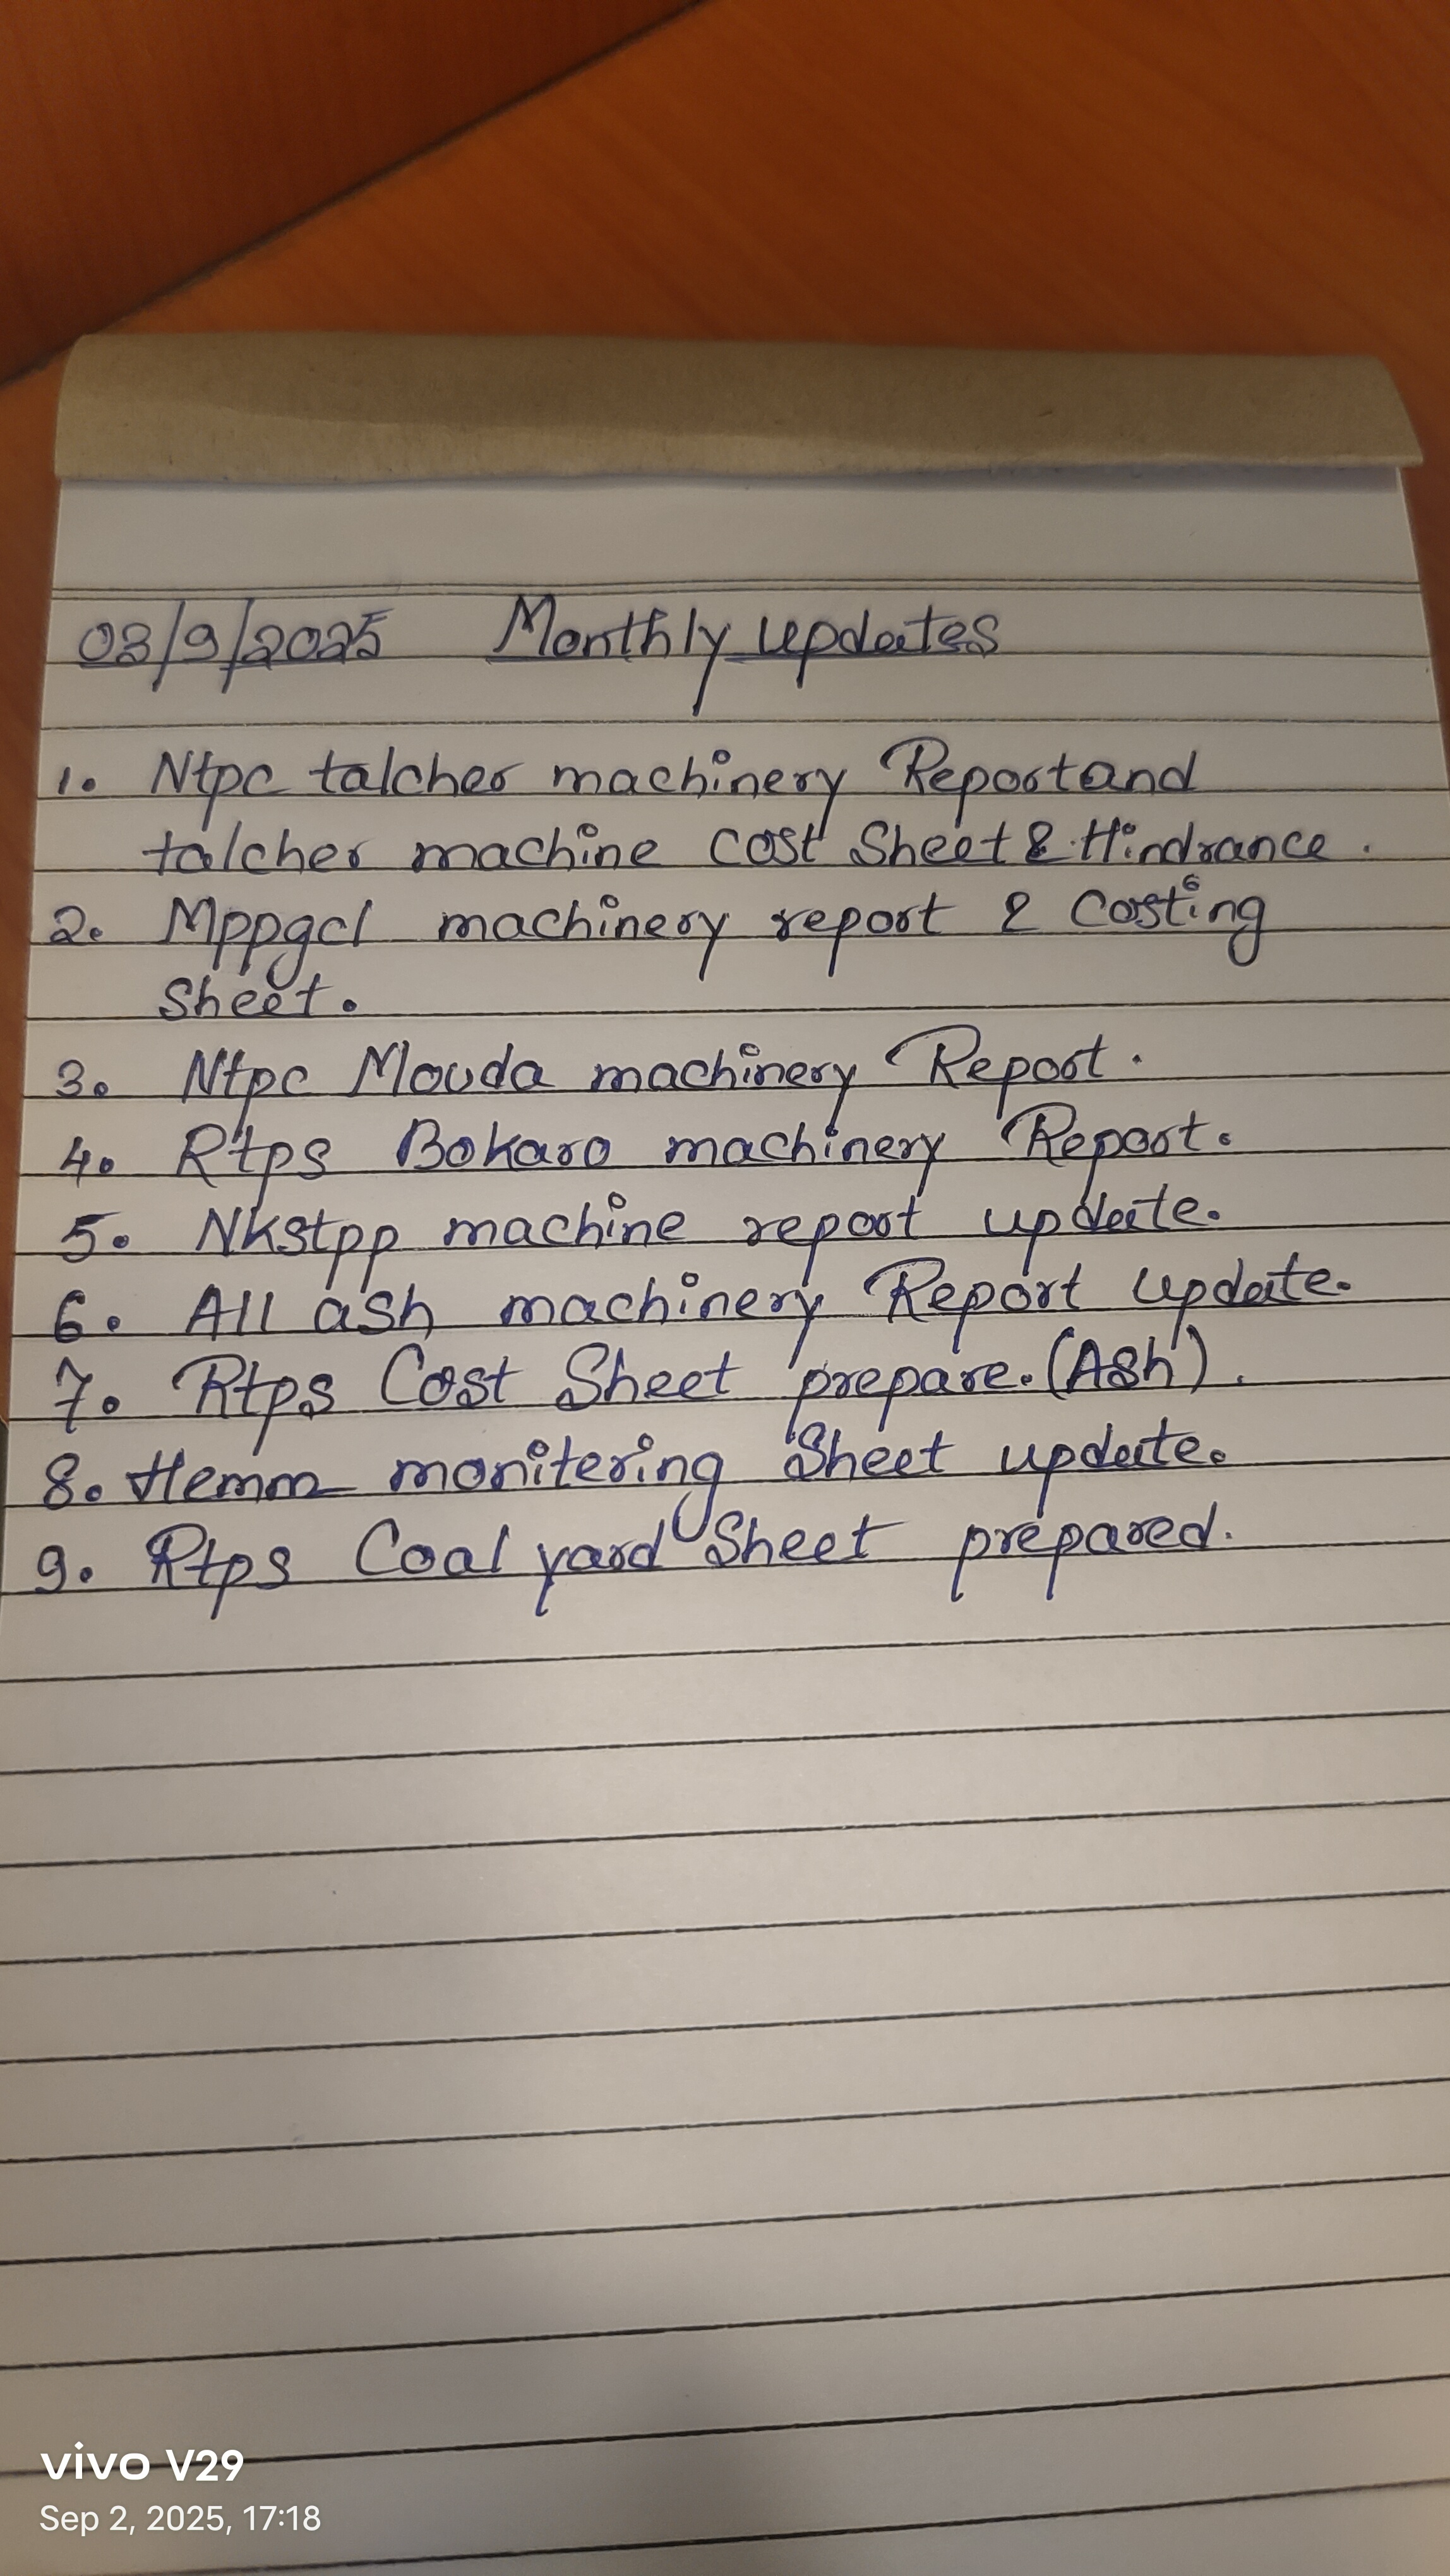 03/9/2025 Monthly updates
1. Ntpc talcher machinery Report and
talcher machine cost Sheet & Hindrance.
2. Mppgcl machinery report & Costing
Sheet.
3. Ntpc Mouda machinery Report.
4. Rtps Bokaro machinery Report.
5. Nkstpp machine report update.
6. All ash machinery Report update.
7. Rtps Cost Sheet prepare. (Ash).
8. Hemm monitering Sheet update.
9. Rtps Coal yard Sheet prepared.
vivo V29
Sep 2, 2025, 17:18